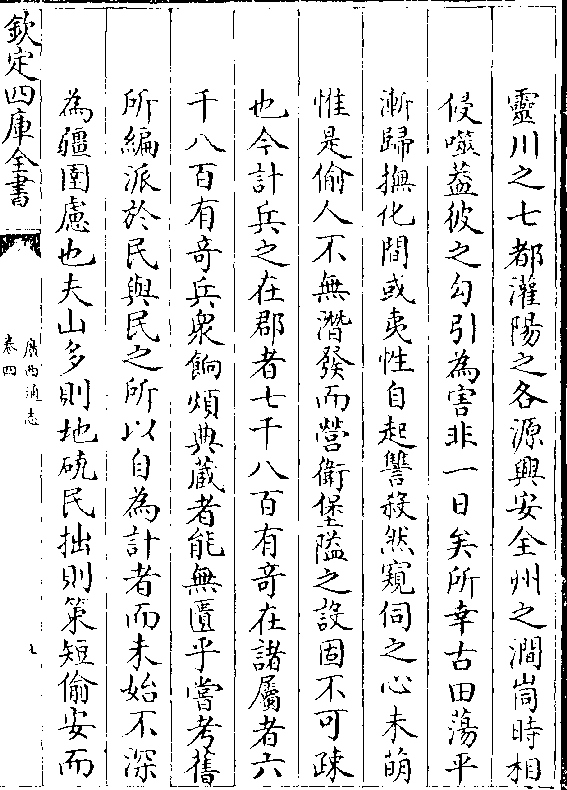 靈川之七都灌陽之各源興安全州之澗峝時相
侵噬葢彼之勾引為害非一日矣所幸古田蕩平
漸歸撫化間或夷性自起讐殺然窺伺之心未萌
惟是偷人不無潛發而營衛堡隘之設固不可疎
也今計兵之在郡者七千八百有奇在諸屬者六
千八百有奇兵衆餉煩典藏者能無匱乎嘗考舊
所編派於民與民之所以自為計者而未始不深
為疆圉慮也夫山多則地磽民拙則策短偷安而
欽定四庫全書
廣西通志
卷四